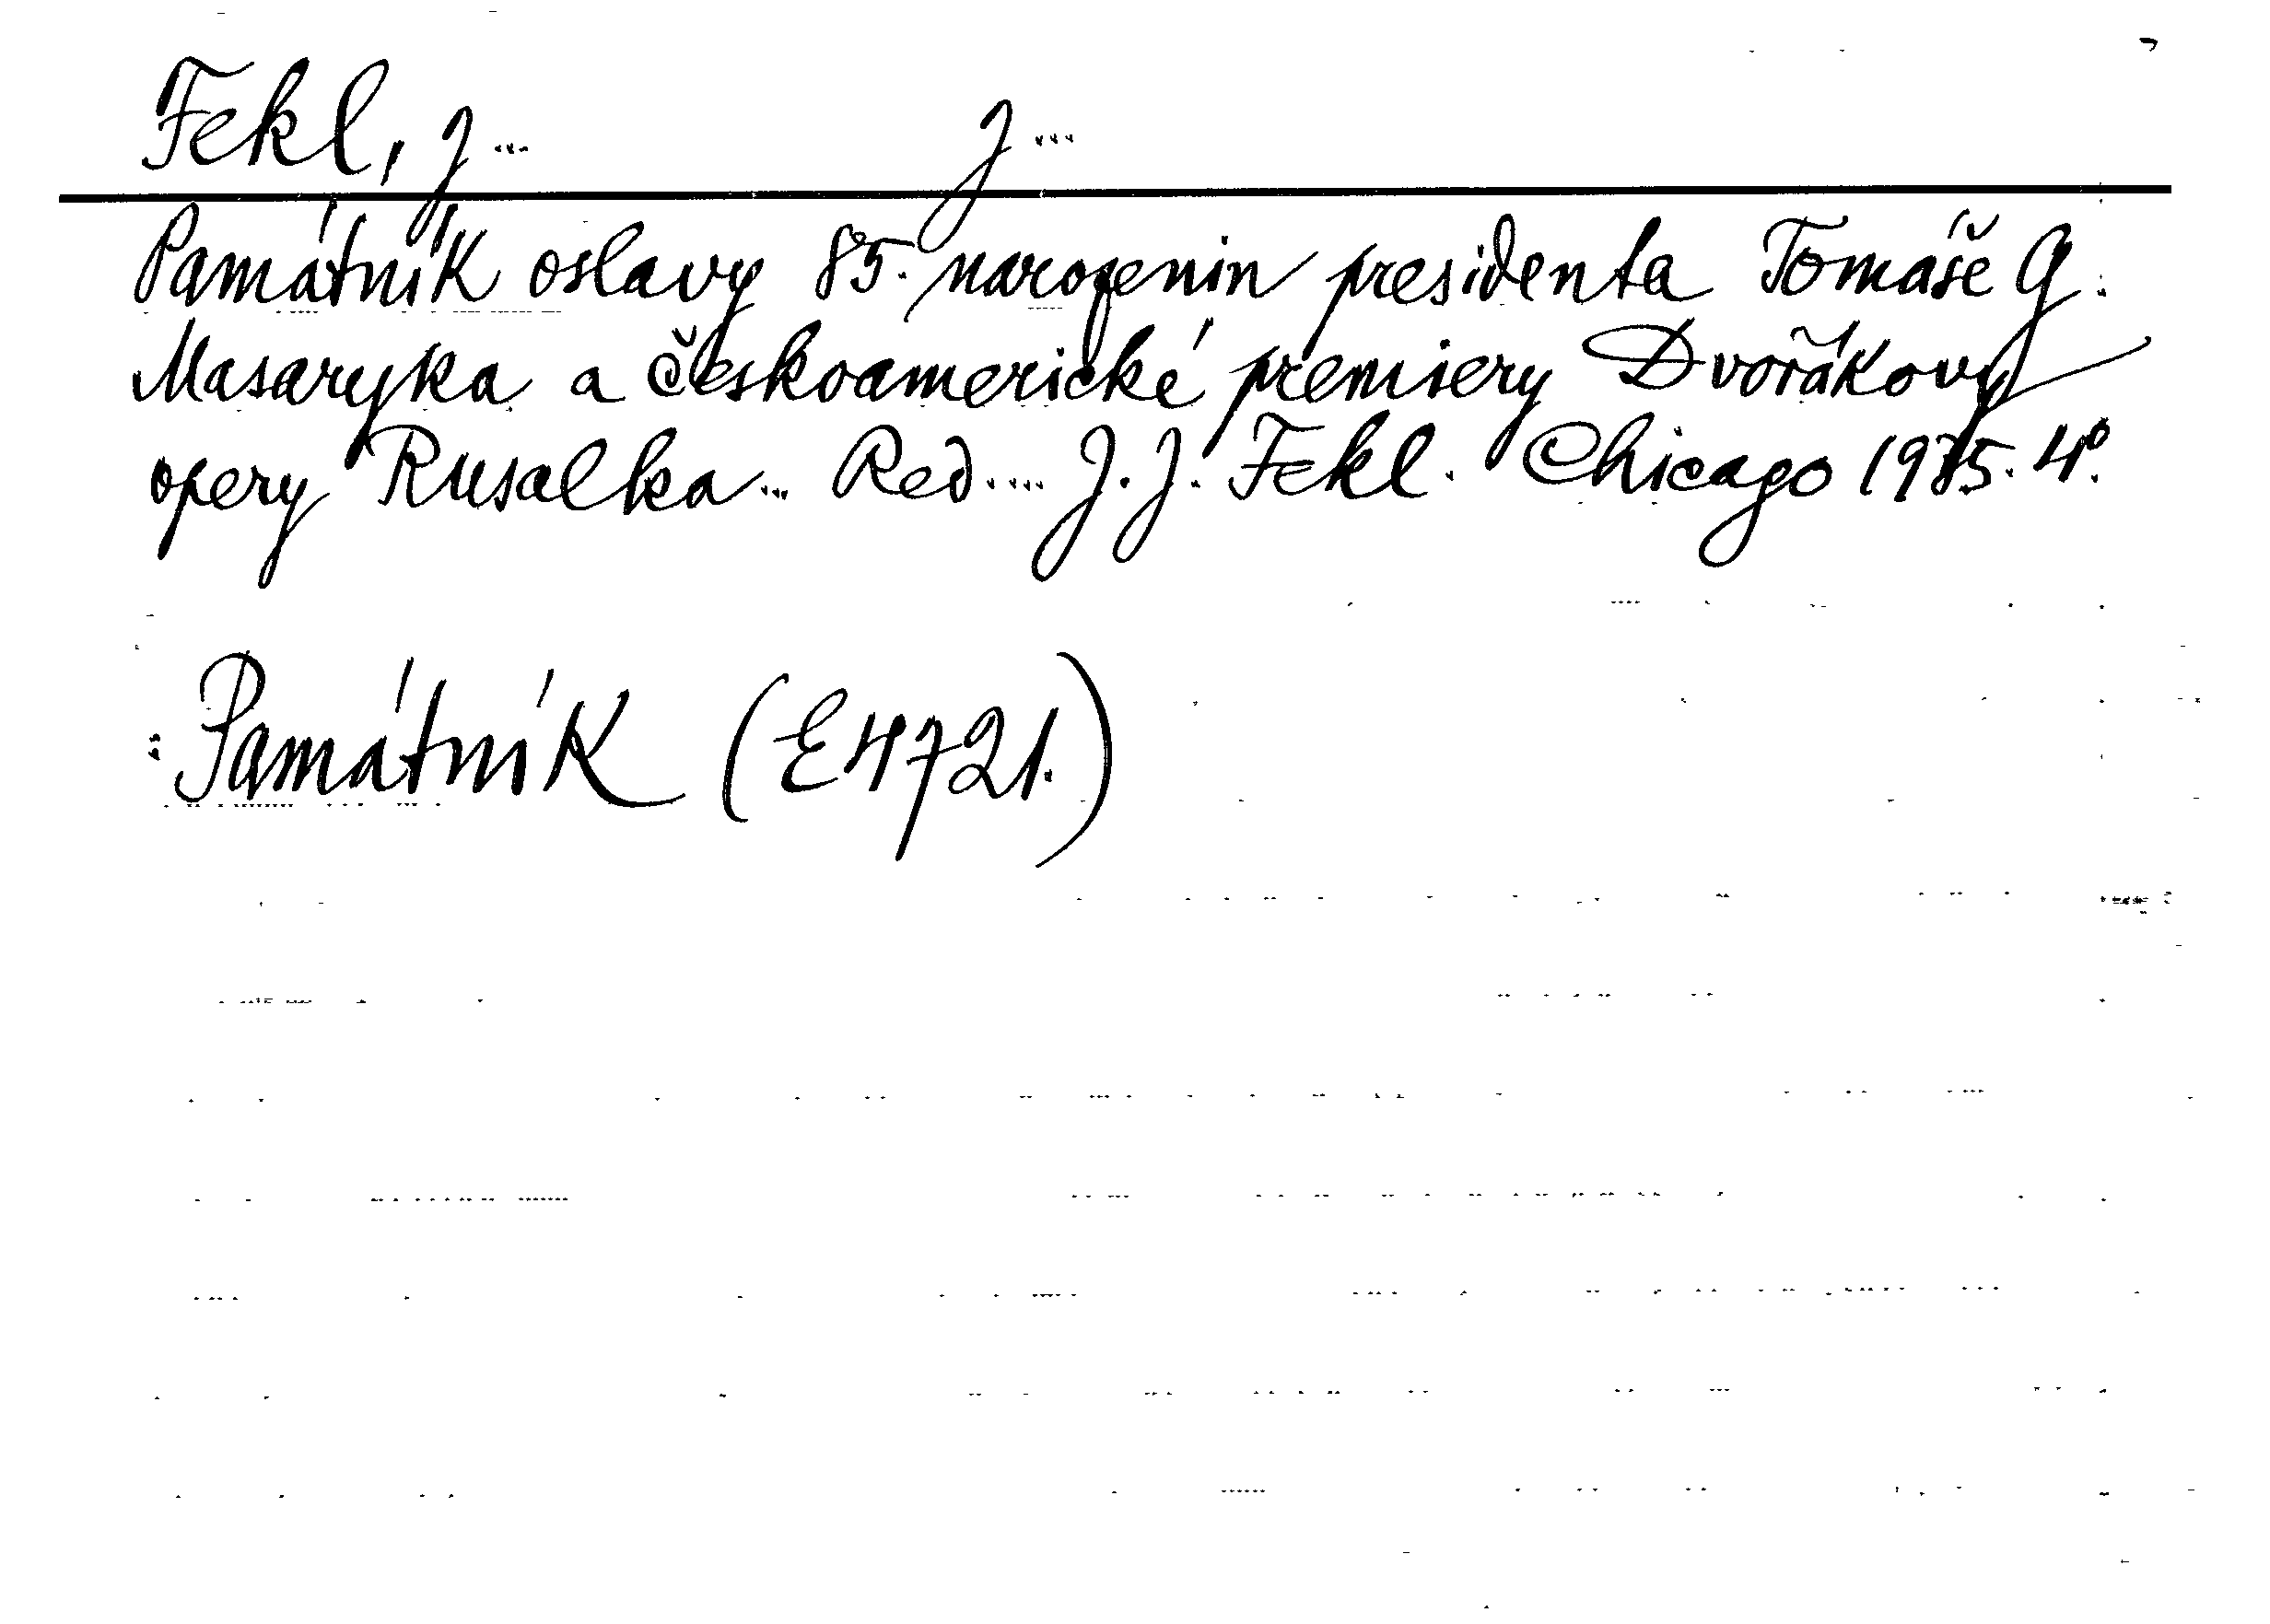 Fekl, J... J...
Památník oslavy 85. narozenin presidenta Tomáše G.
Masaryka a českoamerické premiery Dvořákovy
opery Rusalka... Red.... J. J. Fekl. Chicago 1935. 4°.
Památník (E 4721.)